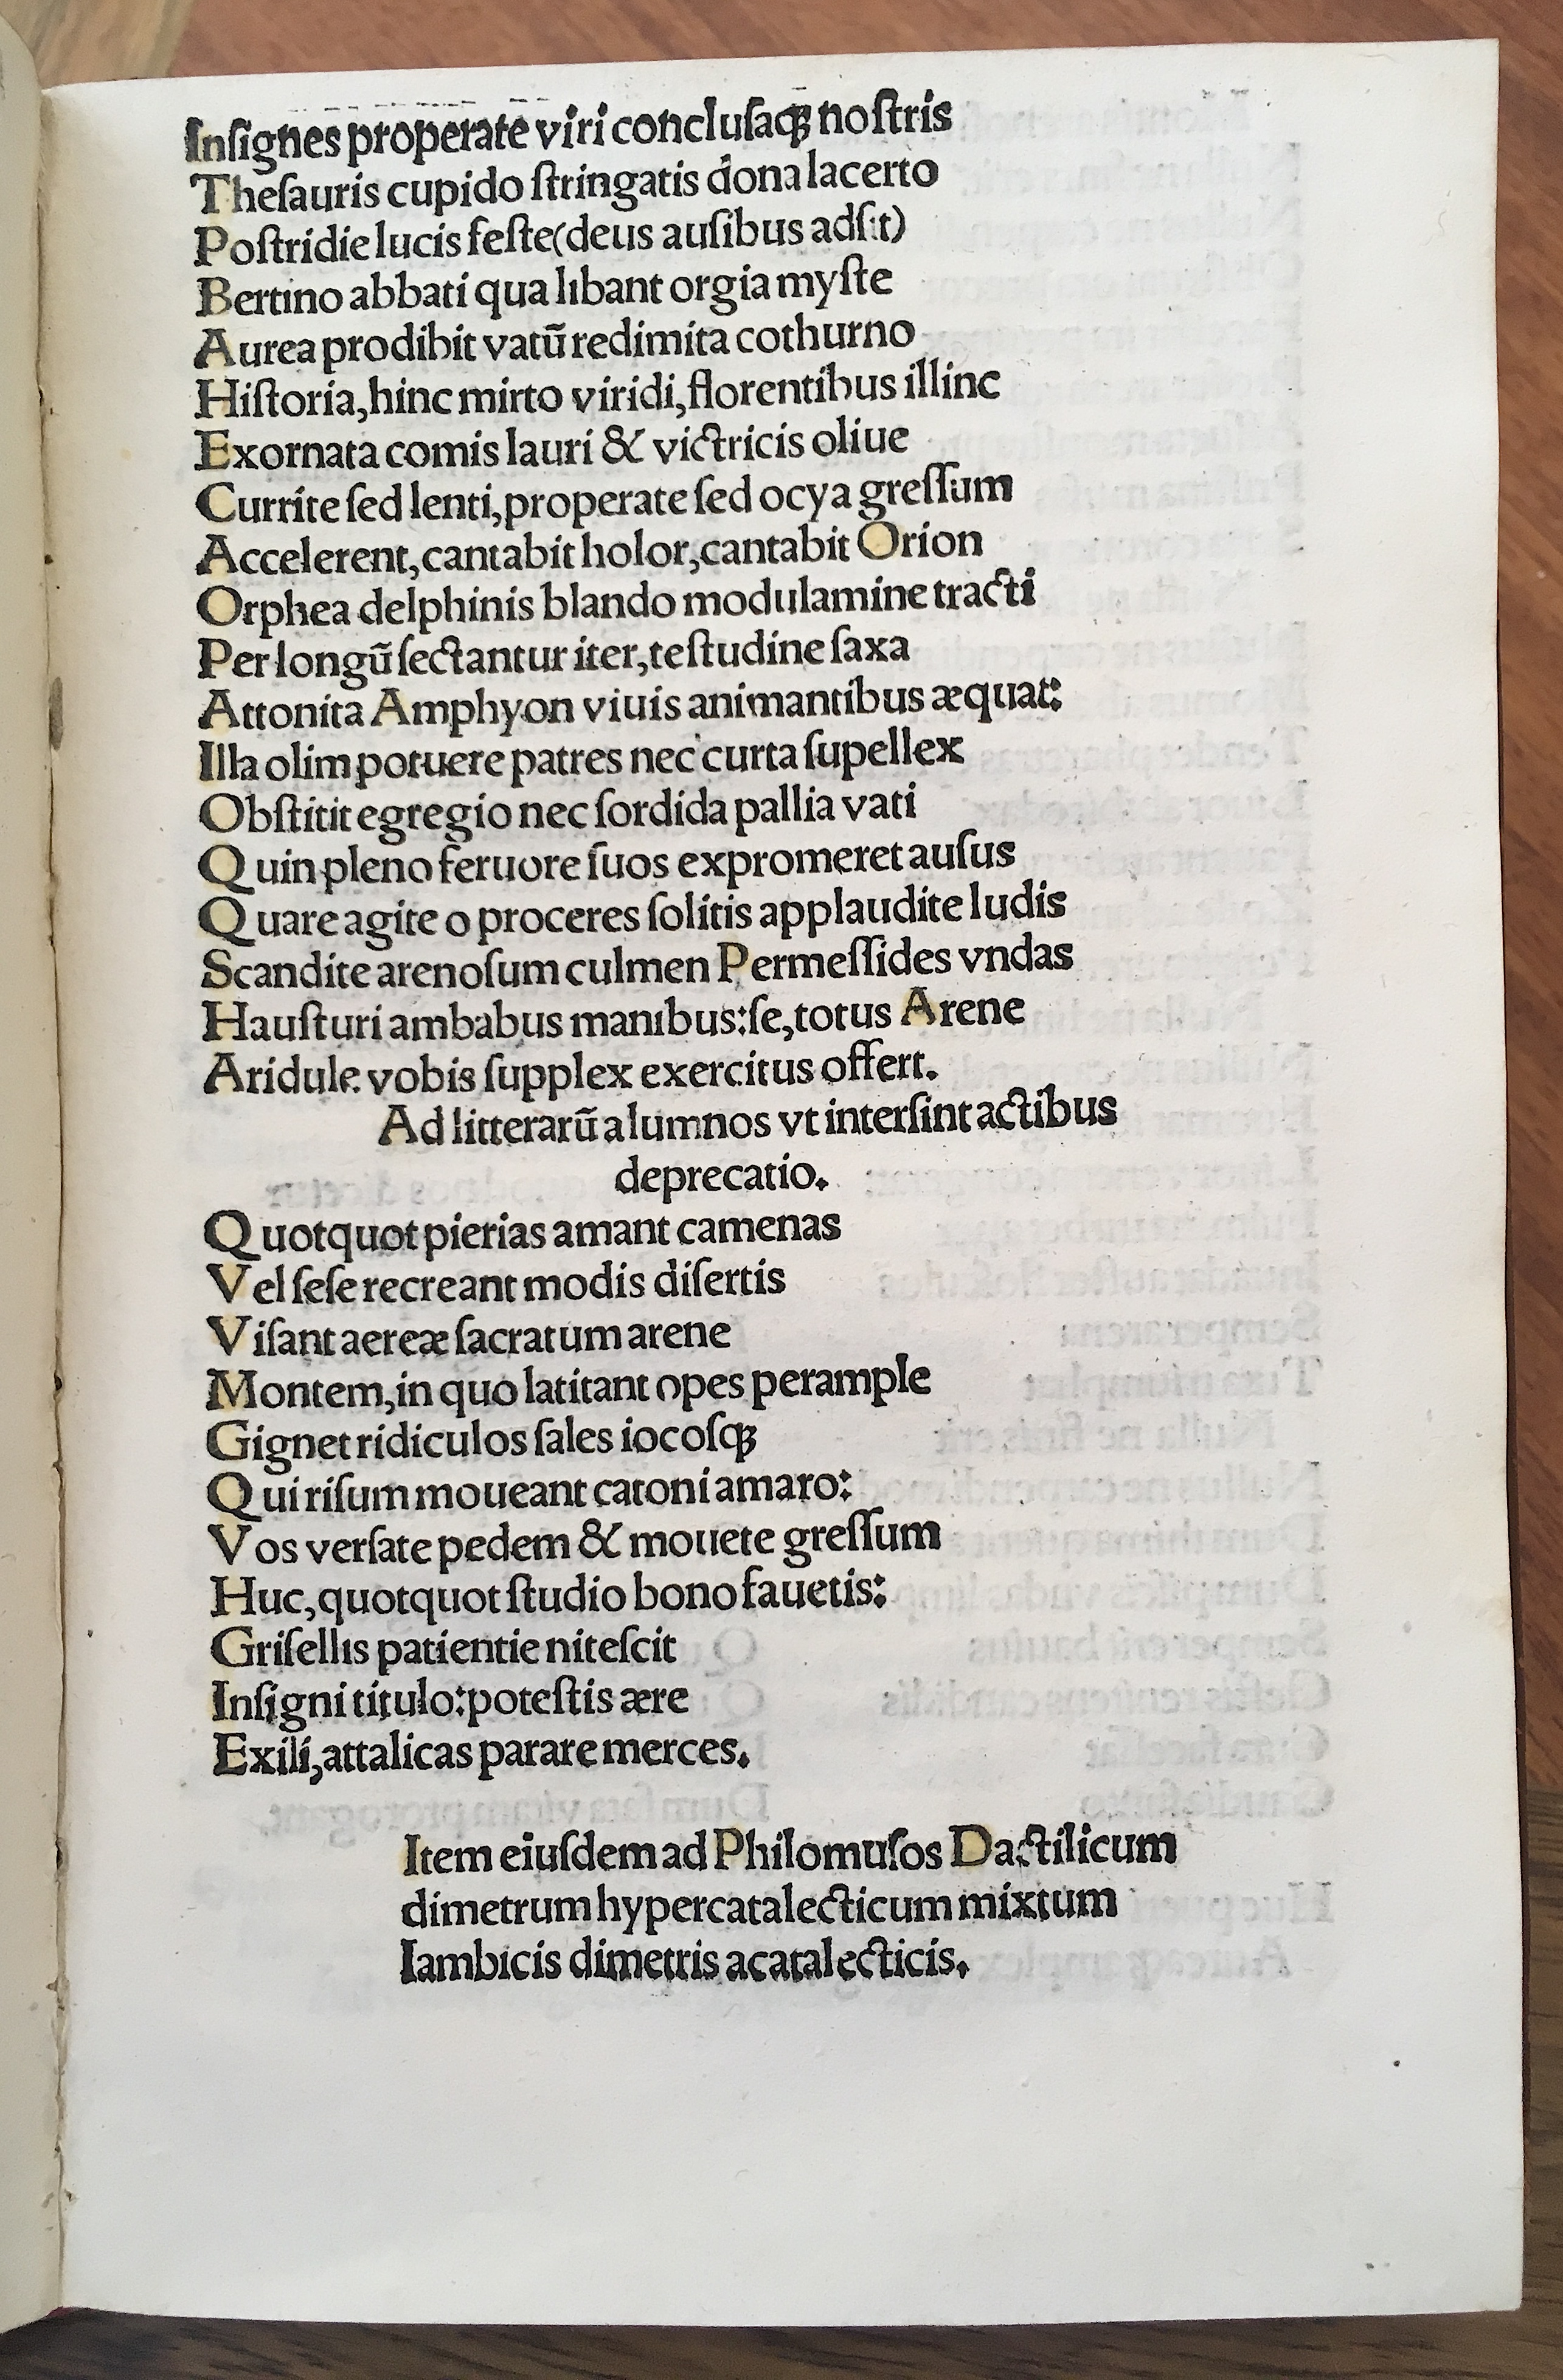 Inſignes properate viri concluſaqꝫ noſtris
Theſauris cupido ſtringatis dona lacerto
Poſtridie lucis feſte(deus auſibus adſit)
Bertino abbati qua libant orgia myſte
Aurea prodibit vatū redimita cothurno
Hiſtoria,hinc mirto viridi,florentibus illinc
Exornata comis lauri & victricis oliue
Currite ſed lenti,properate ſed ocya greſſum
Accelerent,cantabit holor,cantabit Orion
Orphea delphinis blando modulamine tracti
Per longū ſectantur iter,teſtudine ſaxa
Attonita Amphyon viuis animantibus æquat:
Illa olim potuere patres nec curta ſupellex
Obſtitit egregio nec ſordida pallia vati
Quin pleno feruore ſuos expromeret auſus
Quare agite o proceres ſolitis applaudite ludis
Scandite arenoſum culmen Permeſſides vndas
Hauſturi ambabus manibus:ſe,totus Arene
Aridule vobis ſupplex exercitus offert.
Ad litterarū alumnos vt interſint actibus
deprecatio.
Quotquot pierias amant camenas
Vel ſeſe recreant modis diſertis
Viſant aereæ ſacratum arene
Montem,in quo latitant opes perample
Gignet ridiculos ſales iocoſqꝫ
Qui riſum moueant catoni amaro:
Vos verſate pedem & mouete greſſum
Huc,quotquot ſtudio bono fauetis:
Griſellis patientie niteſcit
Inſigni titulo:poteſtis ære
Exili,attalicas parare merces.
Item eiuſdem ad Philomuſos Dactilicum
dimetrum hypercatalecticum mixtum
Iambicis dimetris acatalecticis.